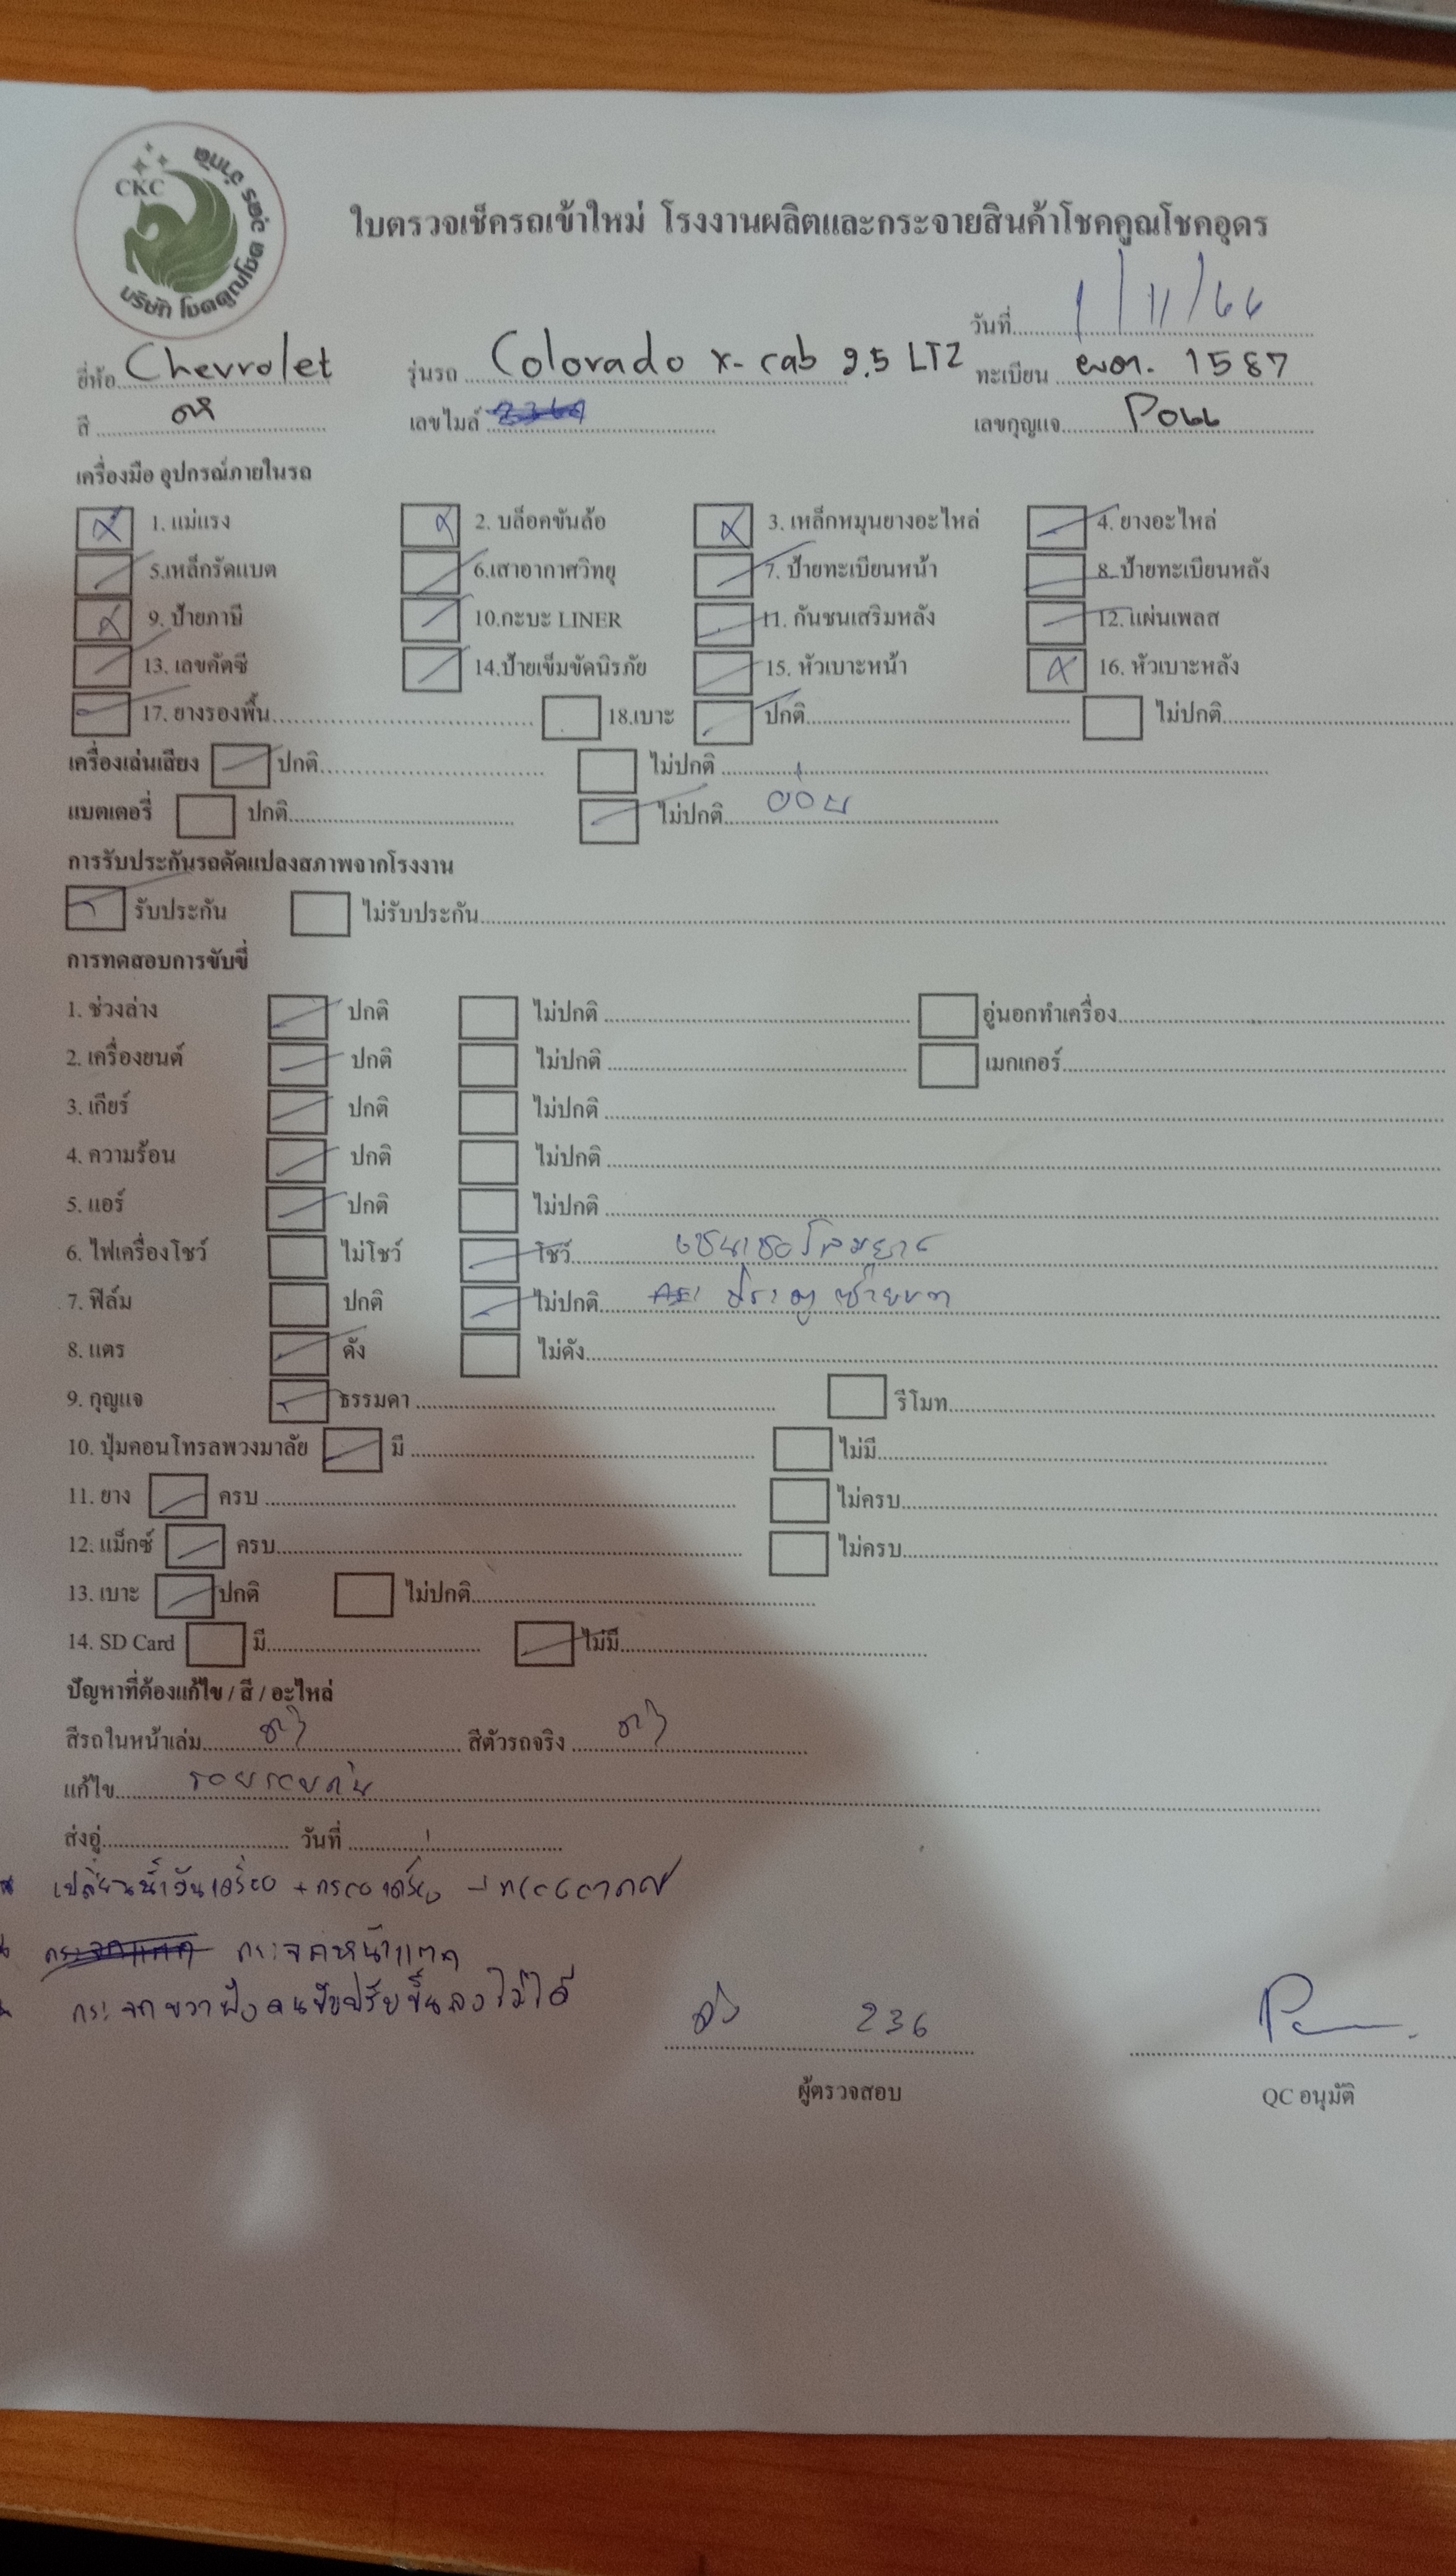 CKC
บริษัท โชคคูณโชค อุดร จำกัด
ใบตรวจเช็ครถเข้าใหม่ โรงงานผลิตและกระจายสินค้าโชคคูณโชคอุดร
วันที่ 1/11/66
ยี่ห้อ Chevrolet รุ่นรถ Colorado x-cab 2.5 LTZ ทะเบียน 1587
สี ดำ เลขไมล์ เลขกุญแจ P066
เครื่องมือ อุปกรณ์ภายในรถ
1. แม่แรง 2. บล็อคขันล้อ 3. เหล็กหมุนยางอะไหล่ 4. ยางอะไหล่
5.เหล็กรัดแบต 6.เสาอากาศวิทยุ 7. ป้ายทะเบียนหน้า 8. ป้ายทะเบียนหลัง
9. ป้ายภาษี 10.กะบะ LINER 11. กันชนเสริมหลัง 12. แผ่นเพลส
13. เลขคัตซี 14.ป้ายเข็มขัดนิรภัย 15. หัวเบาะหน้า 16. หัวเบาะหลัง
17. ยางรองพื้น 18.เบาะ ปกติ ไม่ปกติ
เครื่องเล่นเสียง ปกติ ไม่ปกติ
แบตเตอรี่ ปกติ ไม่ปกติ อ่อน
การรับประกันรถดัดแปลงสภาพจากโรงงาน
รับประกัน ไม่รับประกัน
การทดสอบการขับขี่
1. ช่วงล่าง ปกติ ไม่ปกติ อู่นอกทำเครื่อง
2. เครื่องยนต์ ปกติ ไม่ปกติ เมกเกอร์
3. เกียร์ ปกติ ไม่ปกติ
4. ความร้อน ปกติ ไม่ปกติ
5. แอร์ ปกติ ไม่ปกติ
6. ไฟเครื่องโชว์ ไม่โชว์ โชว์ เซนเซอร์ลมยาง
7. ฟิล์ม ปกติ ไม่ปกติ ประตูซ้ายขวา
8. แตร ดัง ไม่ดัง
9. กุญแจ ธรรมดา รีโมท
10. ปุ่มคอนโทรลพวงมาลัย มี ไม่มี
11. ยาง ครบ ไม่ครบ
12. แม็กซ์ ครบ ไม่ครบ
13. เบาะ ปกติ ไม่ปกติ
14. SD Card มี ไม่มี
ปัญหาที่ต้องแก้ไข / สี / อะไหล่
สีรถในหน้าเล่ม ดำ สีตัวรถจริง ดำ
แก้ไข รอบคัน
ส่งอู่ วันที่
เปลี่ยนน้ำมันเครื่อง + กรองเครื่อง
กระจกหน้าแตก
กระจกขวาฝั่งคนขับปรับขึ้นลงไม่ได้
236
ผู้ตรวจสอบ QC อนุมัติ